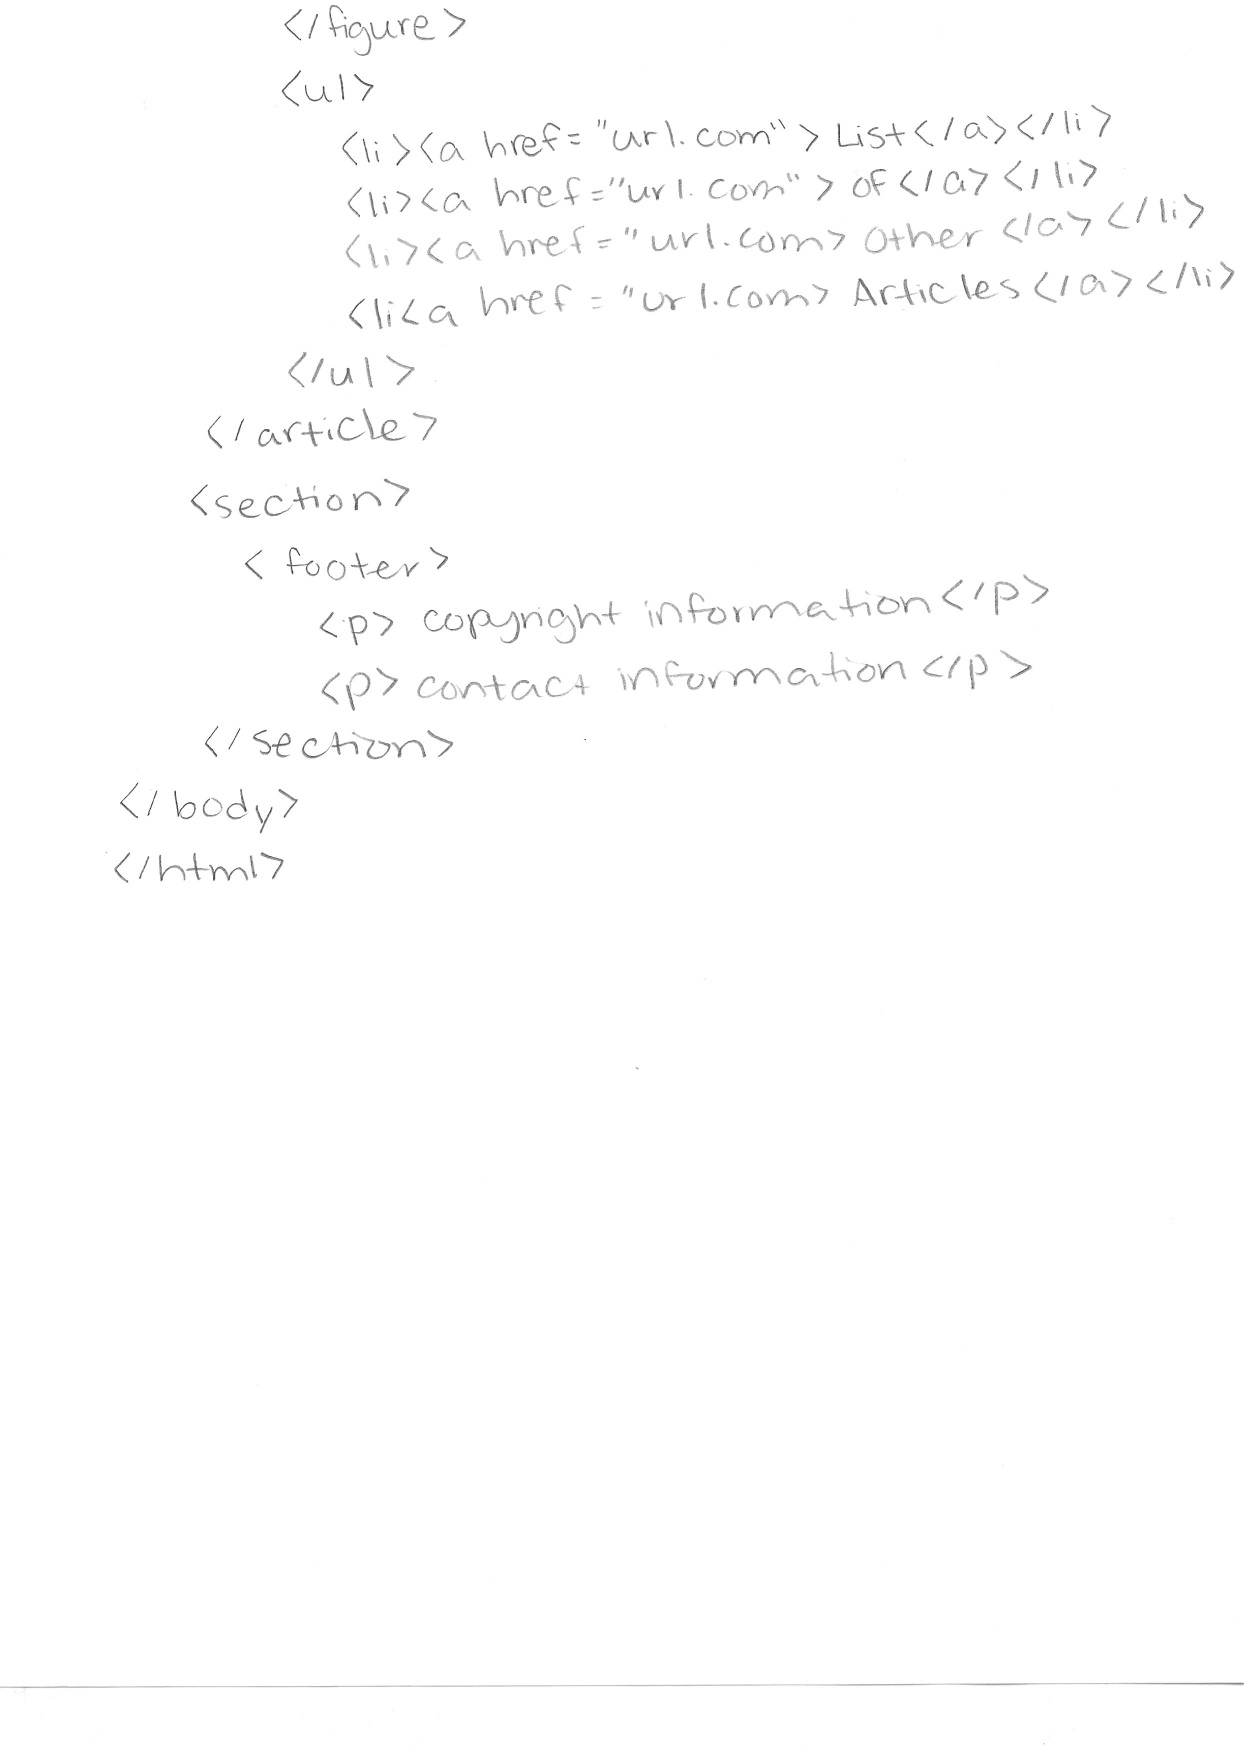 </figure>
<ul>
<li><a href="url.com"> List</a></li>
<li><a href="url.com"> of</a></li>
<li><a href="url.com> Other </a></li>
<li<a href="url.com> Articles</a></li>
</ul>
</article>
<section>
<footer>
<p> copyright information</p>
<p> contact information</p>
</section>
</body>
</html>